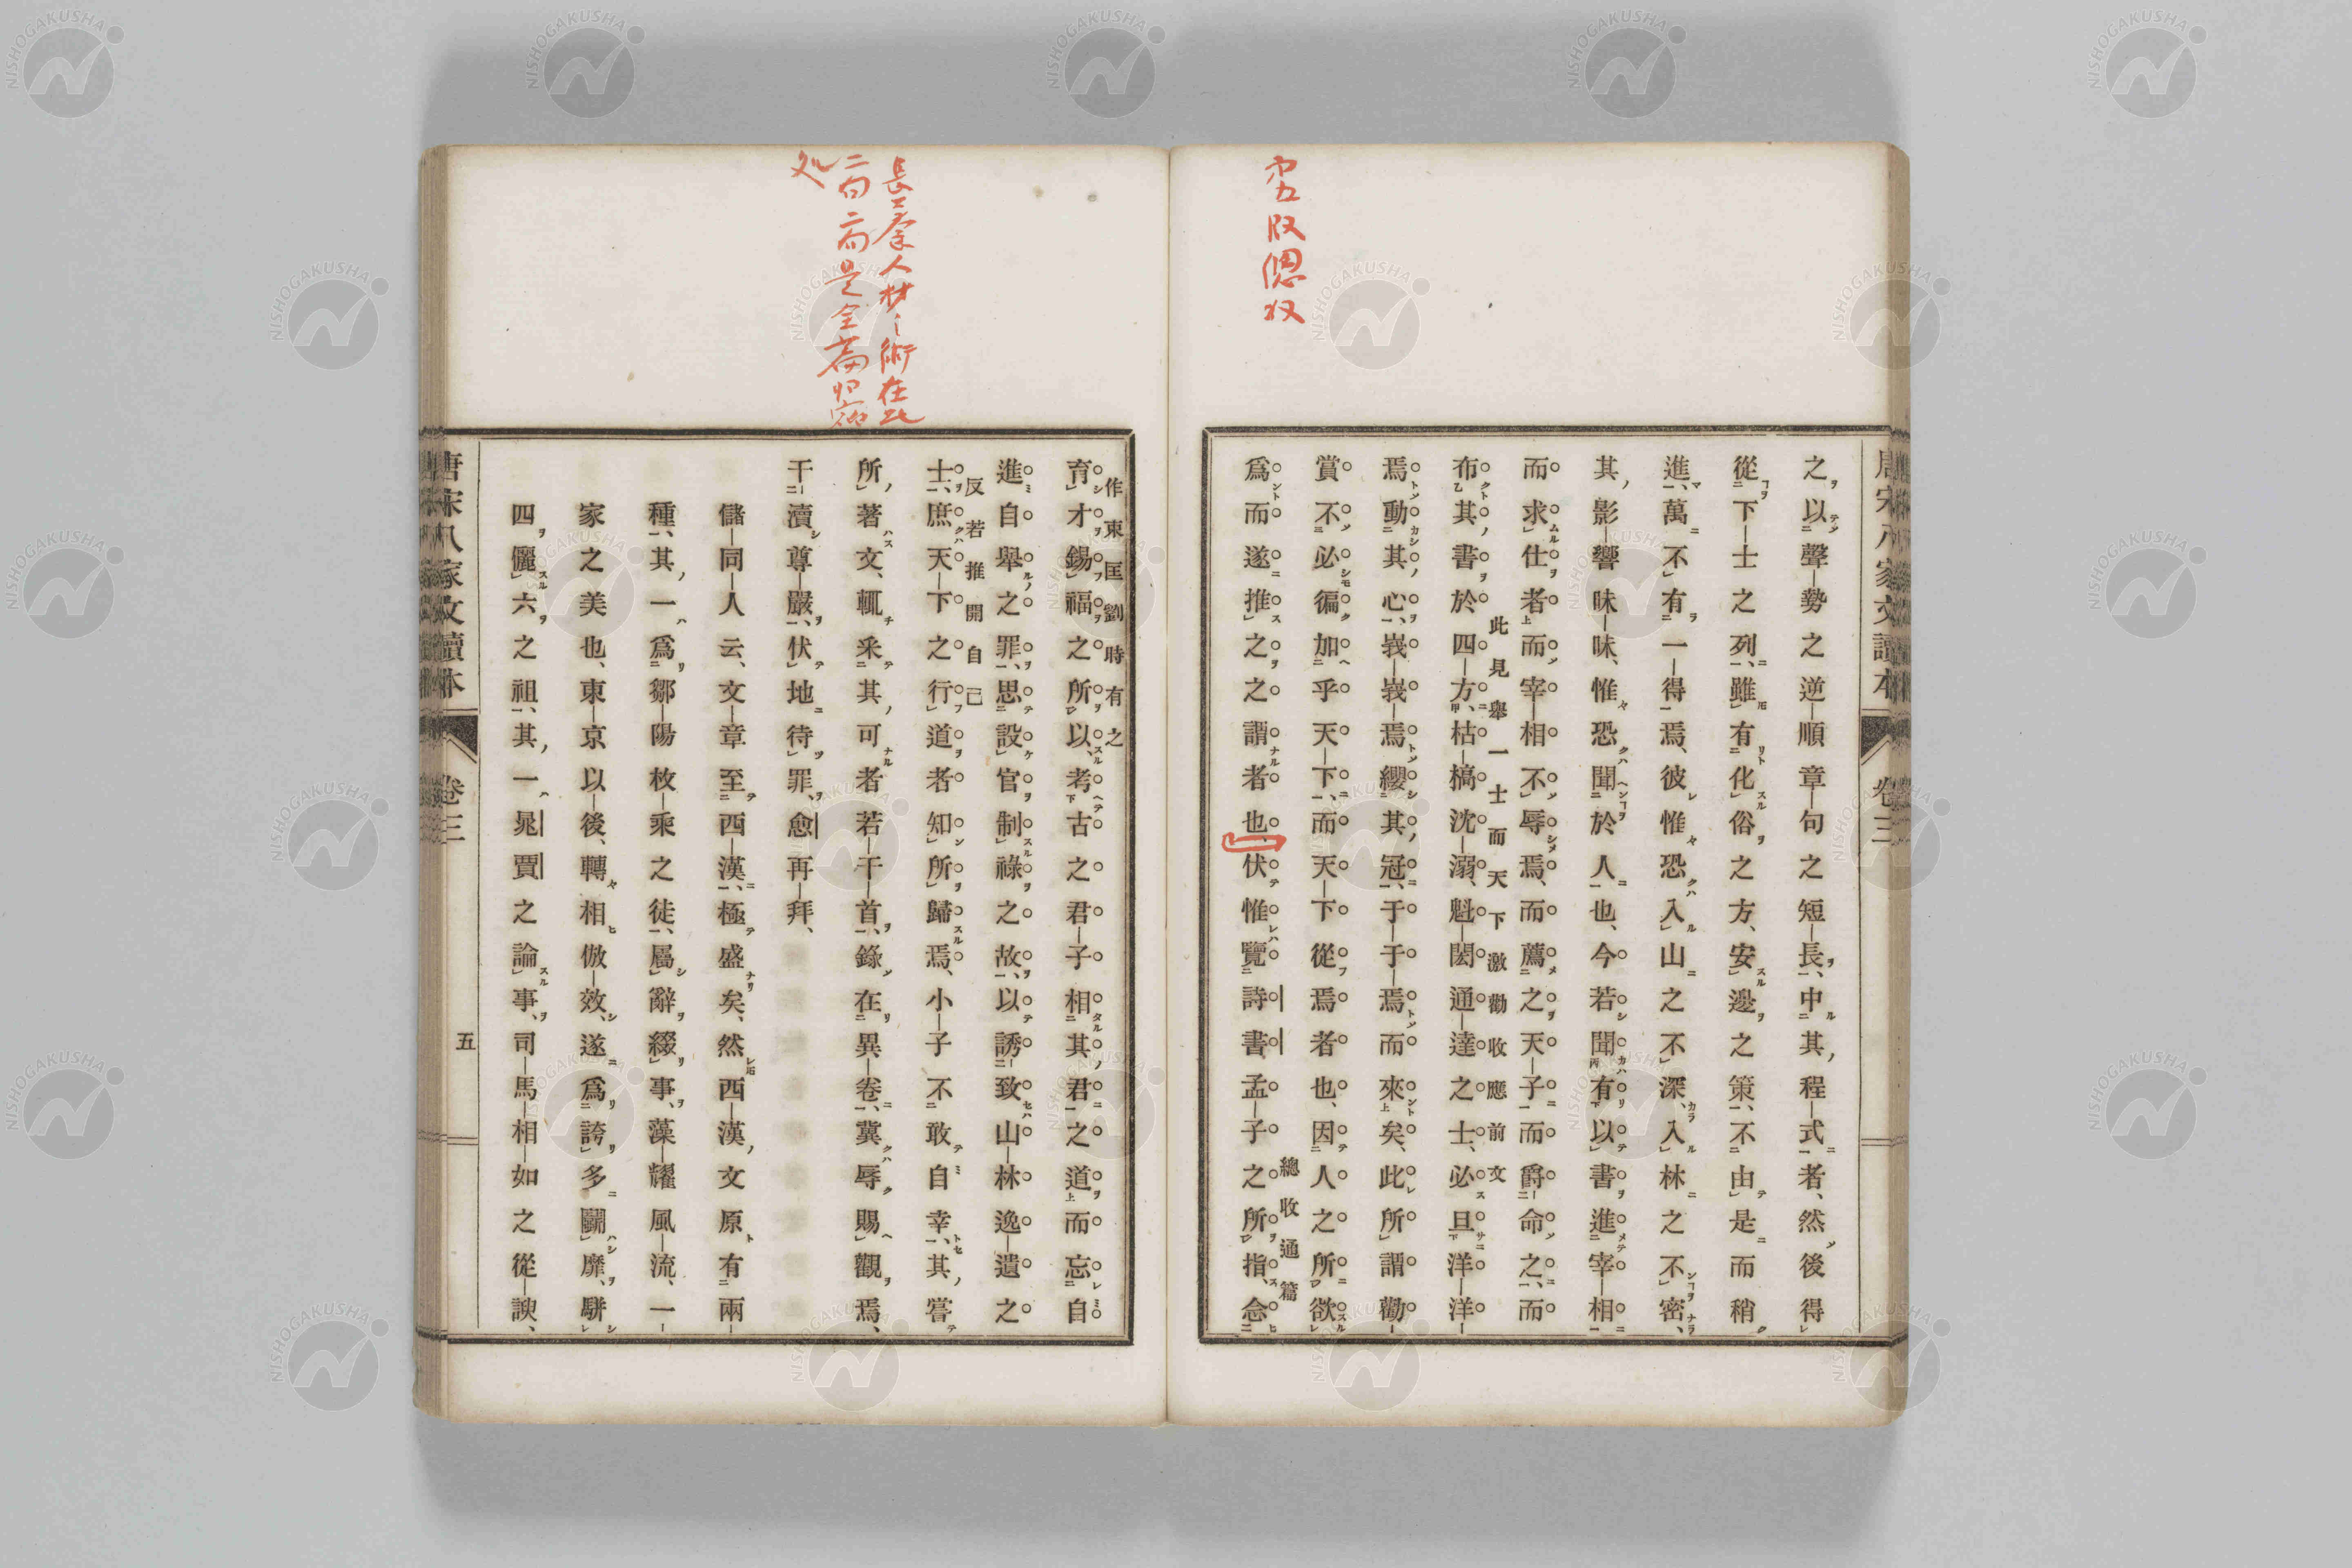 唐宋八家文讀本 卷三
之以聲勢之逆順章句之短長、中其程式者、然後得
從下士之列、雖有化俗之方、安邊之策、不由是而稍
進、萬不有一得焉、彼惟恐入山之不深、入林之不密、
其影響昧昧、惟恐聞於人也、今若聞有以書進宰相
而求仕者而宰相不辱焉、而薦之天子而爵命之、而
此見舉一士而天下激勸收應前文
布其書於四方、枯槁沈溺、魁閎通達之士、必且洋洋
焉動其心、峩峩焉纓其冠、于于焉而來矣、此所謂勸
賞不必徧加乎天下、而天下從焉者也、因人之所欲
總收通篇
爲而遂推之之謂者也、伏惟覽詩書孟子之所指、念
作東匡劉時有之
育才錫福之所以、考古之君子相其君之道而忘自
進自舉之罪、思設官制祿之故、以誘致山林逸遺之
反若推開自己
士、庶天下之行道者知所歸焉、小子不敢自幸、其嘗
所著文、輒采其可者若干首、錄在異卷、冀辱賜觀焉、
干瀆尊嚴、伏地待罪、愈再拜、
儲同人云、文章至西漢、極盛矣、然西漢文原有兩
種、其一爲鄒陽枚乘之徒、屬辭綴事、藻耀風流、一
家之美也、東京以後、轉相倣效、遂爲誇多鬭靡、駢
四儷六之祖、其一晁賈之論事、司馬相如之從諛、
唐宋八家文讀本 卷三 五
長育人材之術在此
二句二句是全篇归宿
処
NISHOGAKUSHA